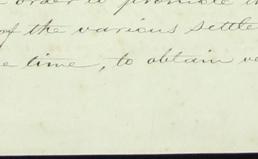 order to promote
of the various settle
time, to obtain